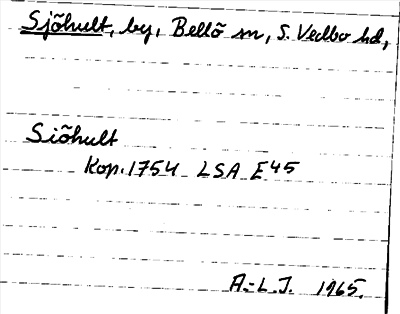 Sjõhult, by, Bellõ sn, S. Vedbo hd,
Siõhult
Kop. 1754 LSA E45
A.-L.J. 1965.